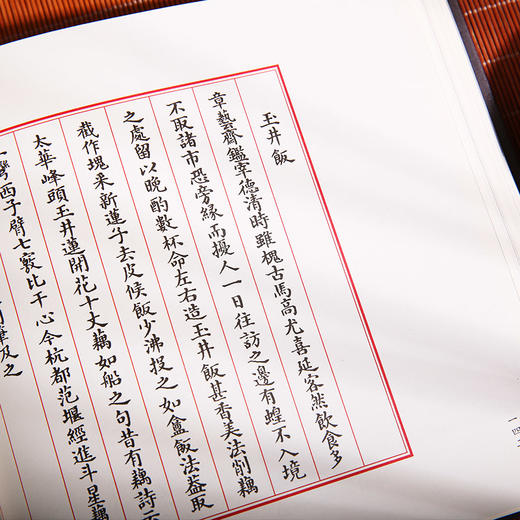 玉井飯
章藝齋鑑宰德清時雖槐古馬高尤喜延客然飲食多
不取諸市恐旁緣而擾人一日往訪之邊有蝗不入境
之處留以晚酌數杯命左右造玉井飯甚香美法削藕
截作塊采新蓮子去皮候飯少沸投之如盦飯法益取
太華峰頭玉井蓮開花十丈藕如船之句昔有藕詩云
一彎西子臂七竅比干心今杭都范堰經進斗星藕
筆及之